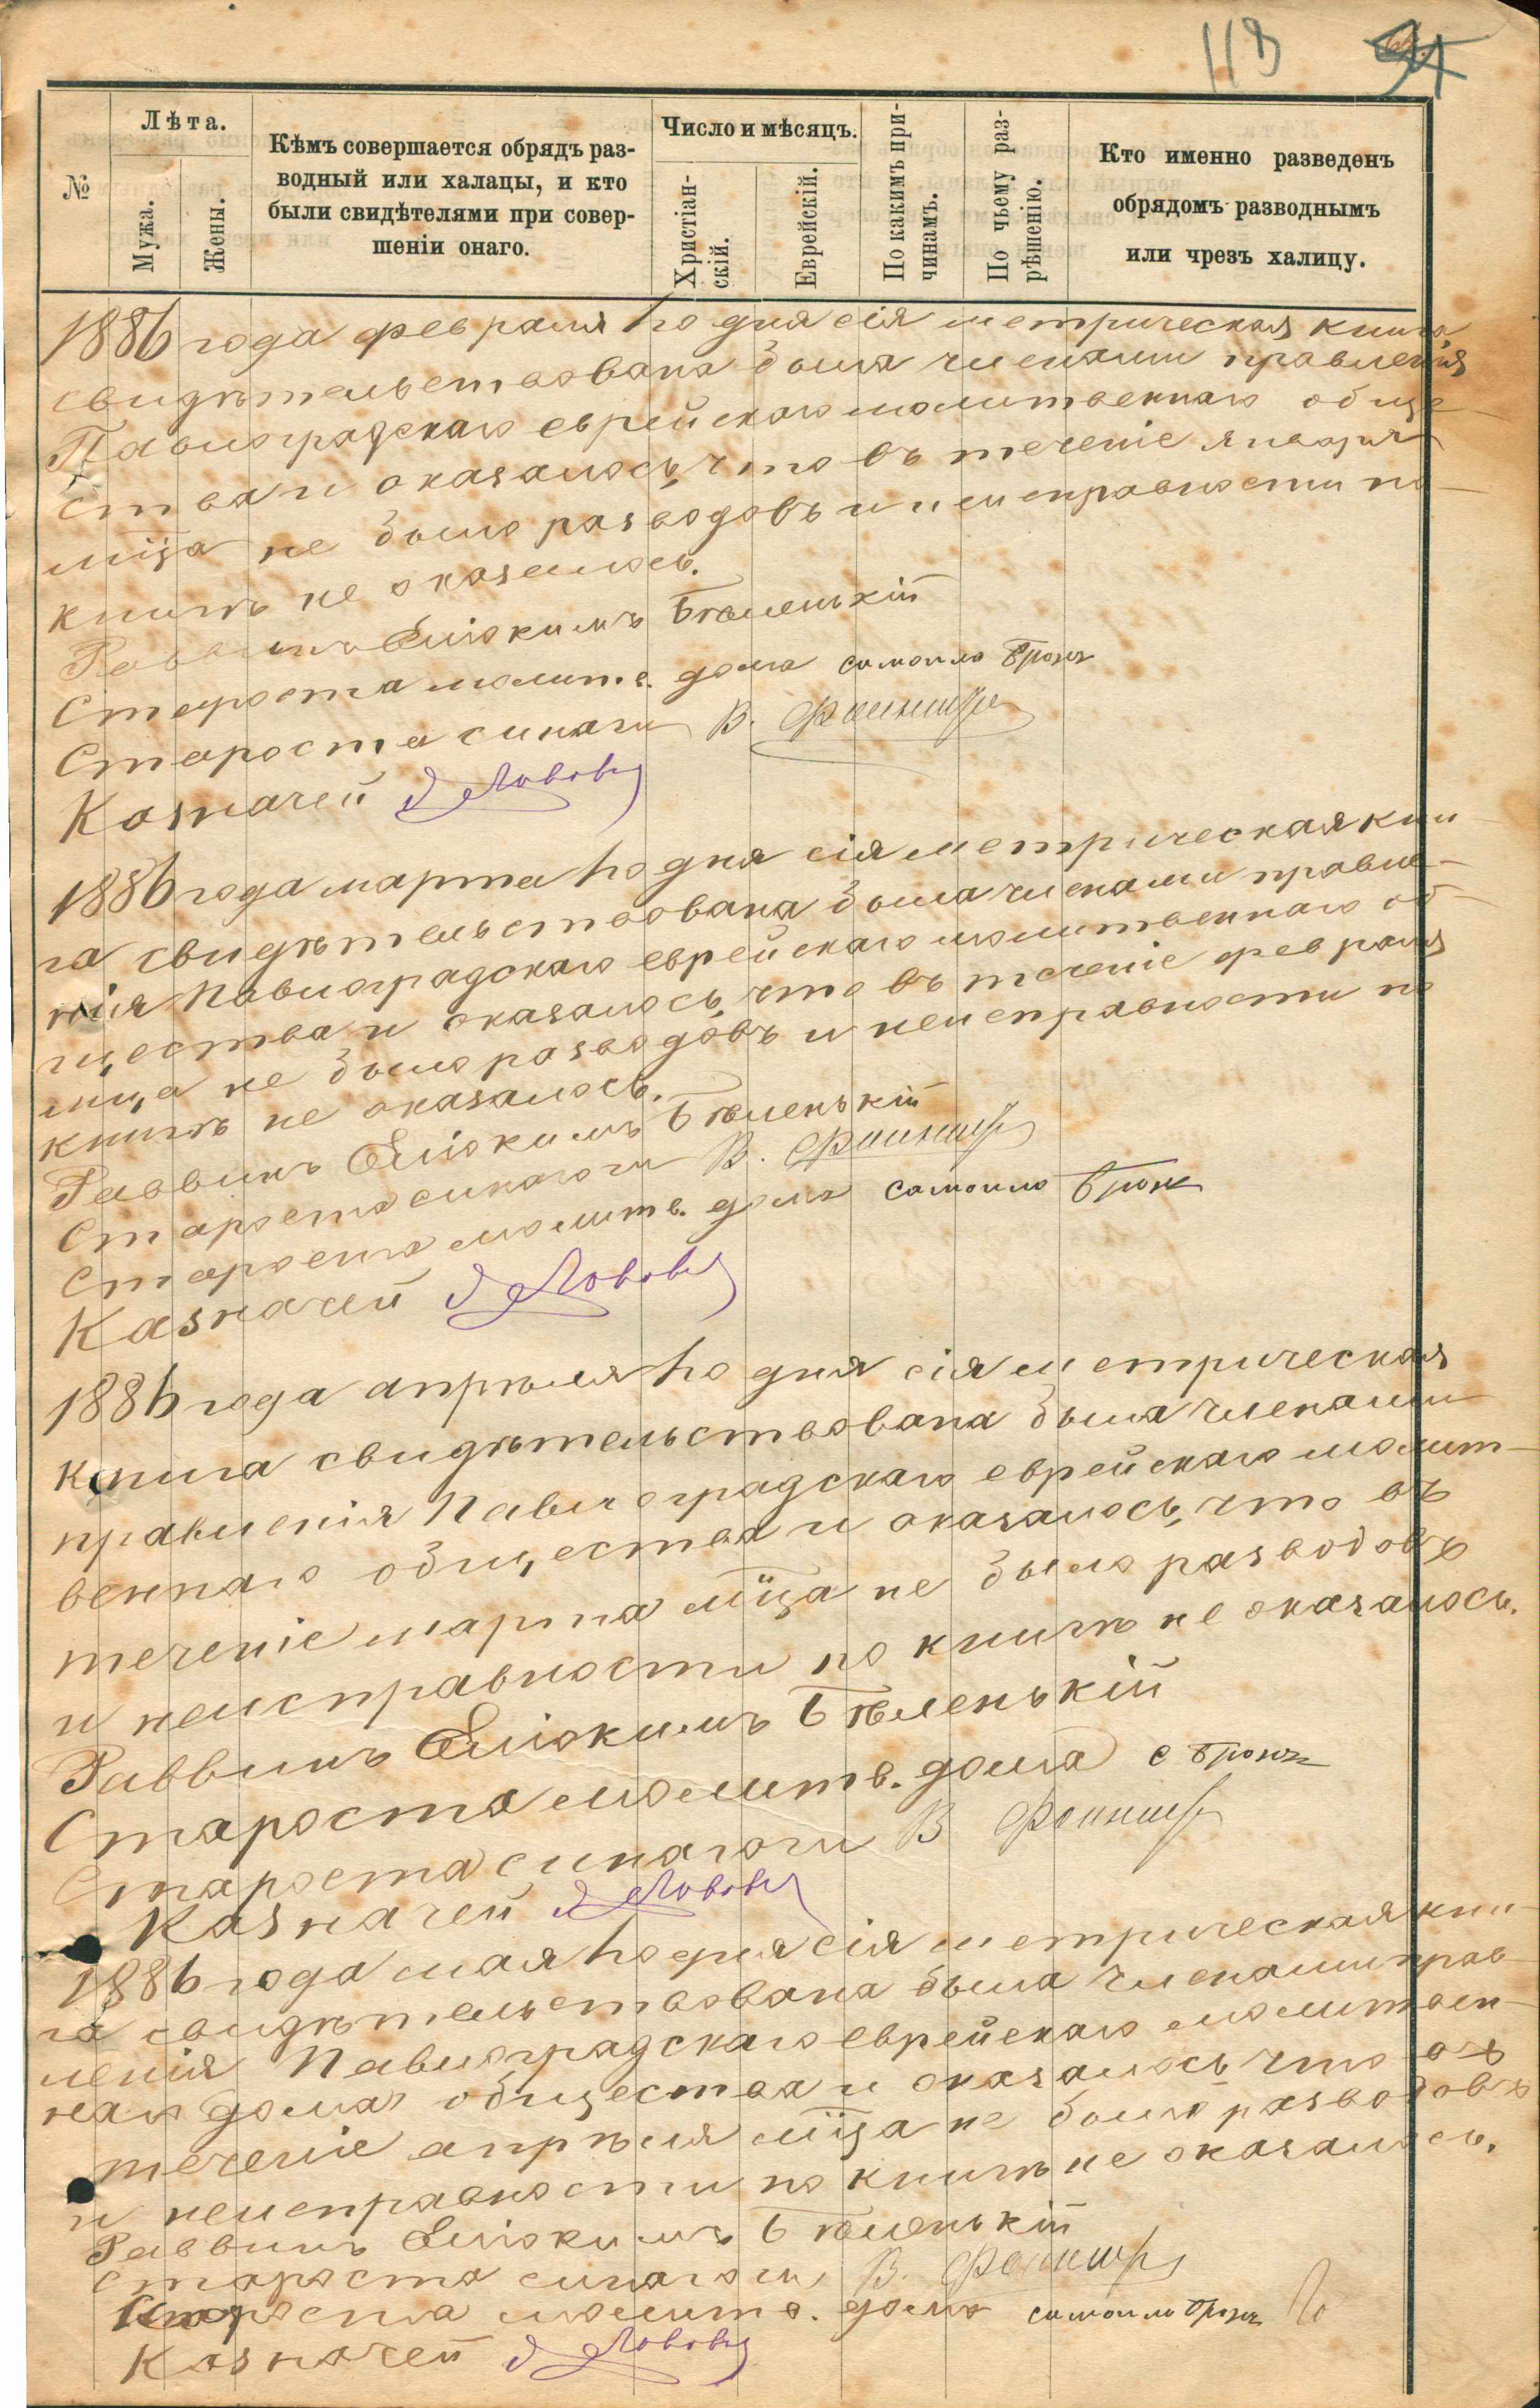 118
№
Лѣта.
Мужа.
Жены.
Кѣмъ совершается обрядъ раз-
водный или халацы, и кто
были свидѣтелями при совер-
шеніи онаго.
Число и мѣсяцъ.
Христіан-
скій.
Еврейскій.
По какимъ при-
чинамъ.
По чьему раз-
рѣшенію.
Кто именно разведенъ
обрядомъ разводнымъ
или чрезъ халицу.
1886 года февраля 1го дня сія метрическая книга
свидѣтельствована была членами правленія
Павлоградскаго еврейскаго молитвеннаго обще-
ства и оказалось, что въ теченіе января
мца не было разводовъ и неисправности по
книгѣ не оказалось.
Раввинъ Еліокимъ Бѣленькій
Староста молитв. дома самоило Бронъ
Староста синаги В.
Казначей
1886 года марта 1го дня сія метрическая кни-
га свидѣтельствована была членами правле-
нія Павлоградскаго еврейскаго молитвеннаго об-
щества и оказалось, что въ теченіе февраля
мца не было разводовъ и неисправности по
книгѣ не оказалось.
Раввинъ Еліокимъ Бѣленькій
Староста синагоги В.
Староста молитв. дома самоило Бронъ
Казначей
1886 года апрѣля 1го дня сія метрическая
книга свидѣтельствована была членами
правленія Павлоградскаго еврейскаго молит-
веннаго общества и оказалось, что въ
теченіе марта мца не было разводовъ
и неисправности по книгѣ не оказалось.
Раввинъ Еліокимъ Бѣленькій
Староста молитв. дома С Бронъ
Староста синагоги В
Казначей
1886 года мая 1го дня сія метрическая кни-
га свидѣтельствована была членами прав-
ленія Павлоградскаго еврейскаго молитвен-
наго дома общества и оказалось что въ
теченіе апрѣля мца не было разводовъ
и неисправности по книгѣ не оказалось.
Раввинъ Еліокимъ Бѣленькій
Староста синагоги В.
Староста молитв. дома самоило Бронъ
Казначей